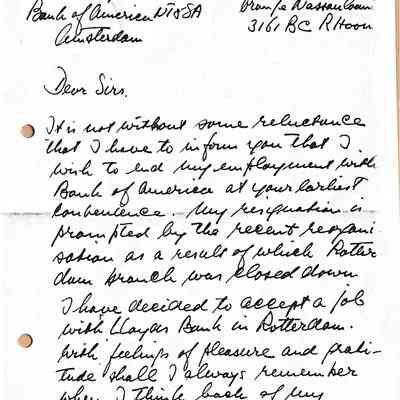 Bank of America NT&SA
Amsterdam
Oranje Nassaulaan
3161 BC Rhoon
Dear Sirs,
It is not without some reluctance
that I have to inform you that I
wish to end my employment with
Bank of America at your earliest
convenience. My resignation is
prompted by the recent reorgani-
sation as a result of which Rotter
dam branch was closed down
I have decided to accept a job
with Lloyds Bank in Rotterdam.
With feelings of pleasure and grati-
tude shall I always remember
when I think back of my